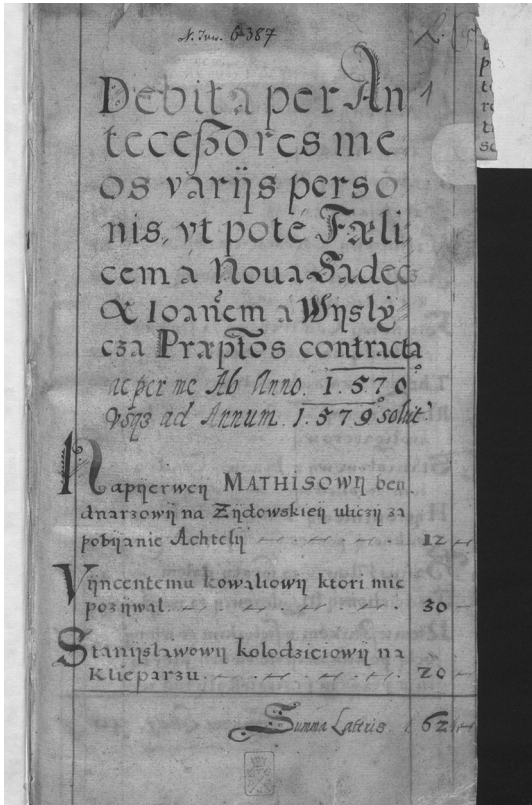 N. Inw. 6387
1
Debita per An
teceßores me
os varijs perso
nis, vt poté Fæli
cem á Noua Sadecz
& Ioañem á Wÿslÿ
cza Præptos contracta
ac per me Ab Anno. 1.570
Vsqз ad Annum. 1.579 solut
Napijerweij MATHISOWIJ ben
dnarzowij na Zÿdowskieÿ uliczÿ za
pobijanie Achtelij 12
Vijncentemu kowaliowij ktori mie
pozijwal. 30
Stanijsławowij kolodzieiowij na
Klieparzu. 20
Summa Lateris 62